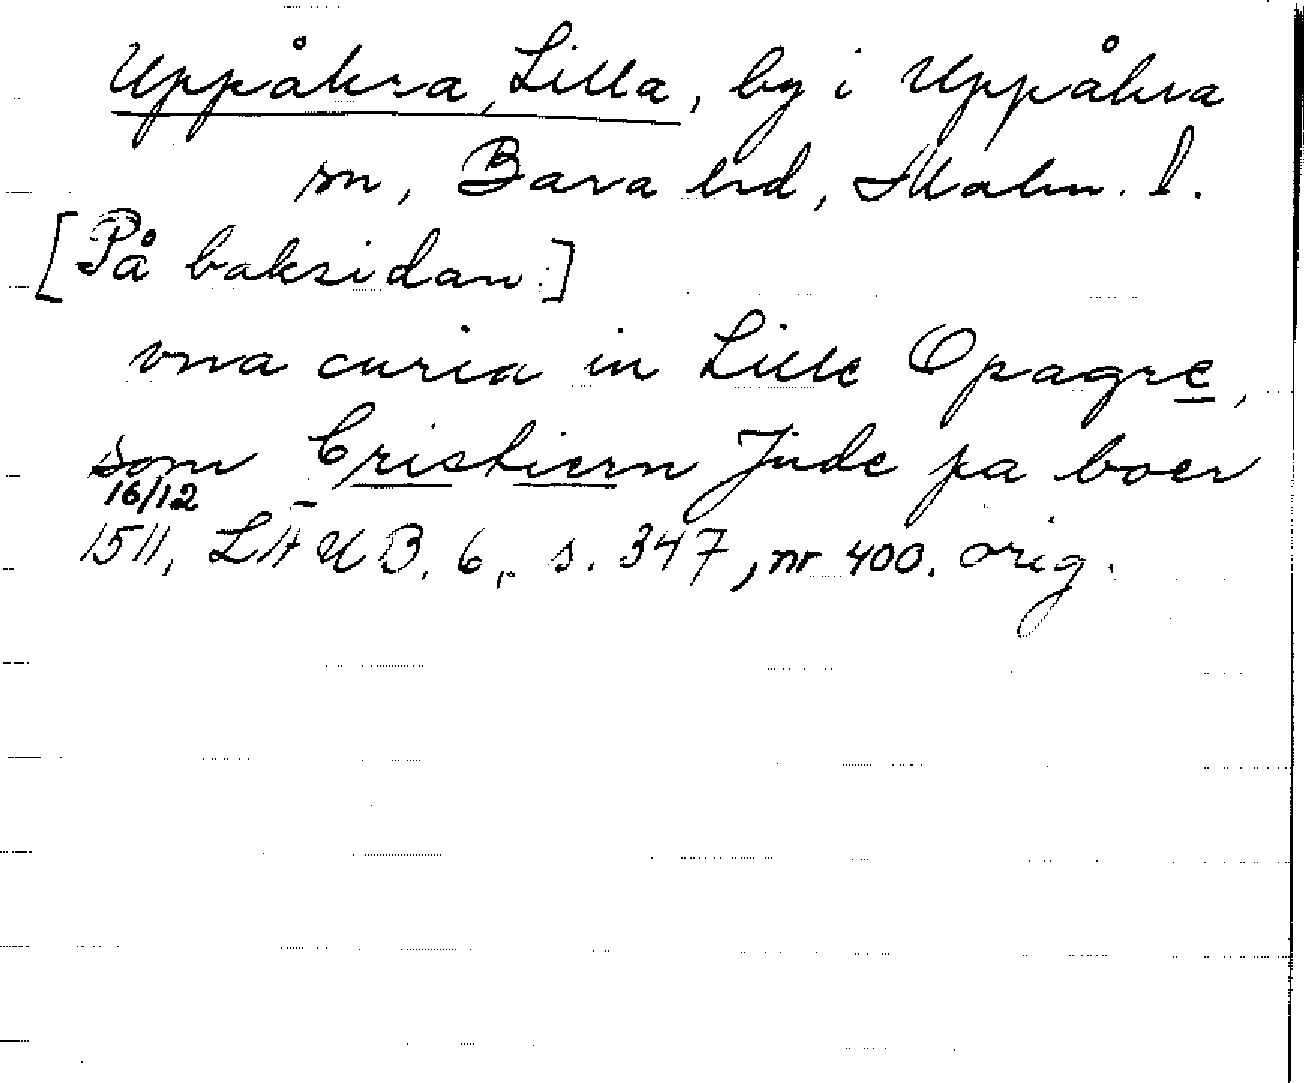 Uppåkra, Lilla, by i Uppåkra
sn, Bara hrd, Malm. l.
[På baksidan:]
vna curia in Lille Opagre,
som Cristiern Jude pa boer
16/12
1511, LÄUB. 6, s. 347, nr 400. orig.